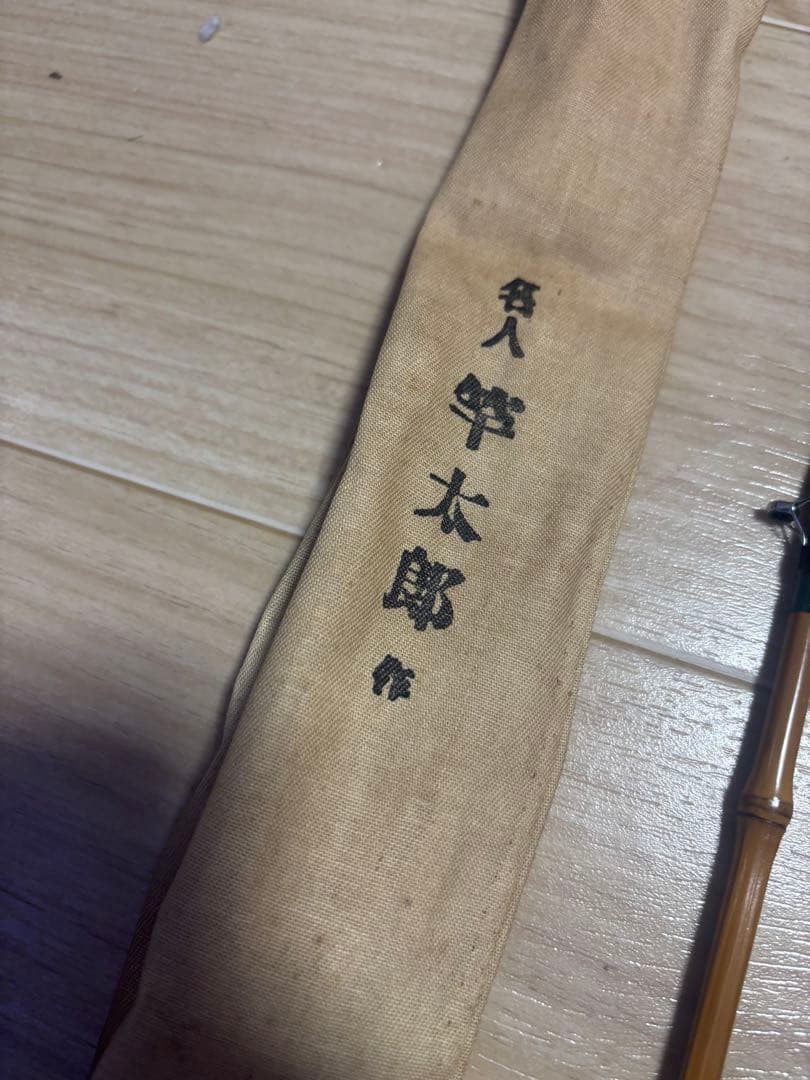 名人 竿太郎 作